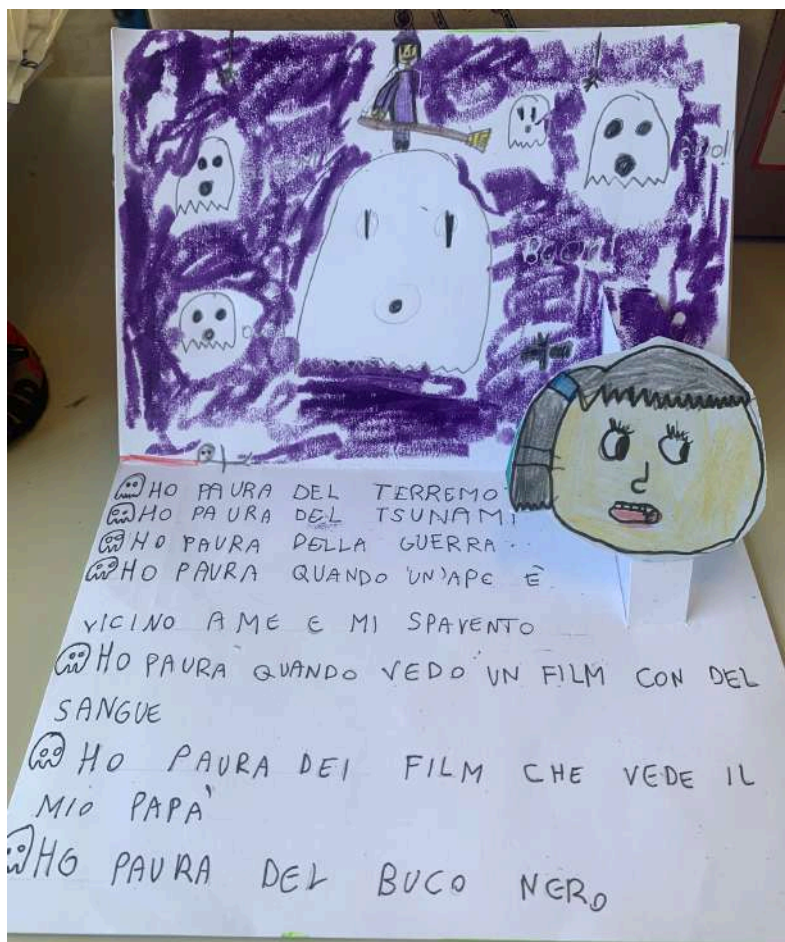 Boom!
HO PAURA DEL TERREMO
HO PAURA DEL TSUNAMI
HO PAURA DELLA GUERRA
HO PAURA QUANDO UN'APE È
VICINO A ME E MI SPAVENTO
HO PAURA QUANDO VEDO UN FILM CON DEL
SANGUE
HO PAURA DEI FILM CHE VEDE IL
MIO PAPA'
HO PAURA DEL BUCO NERO